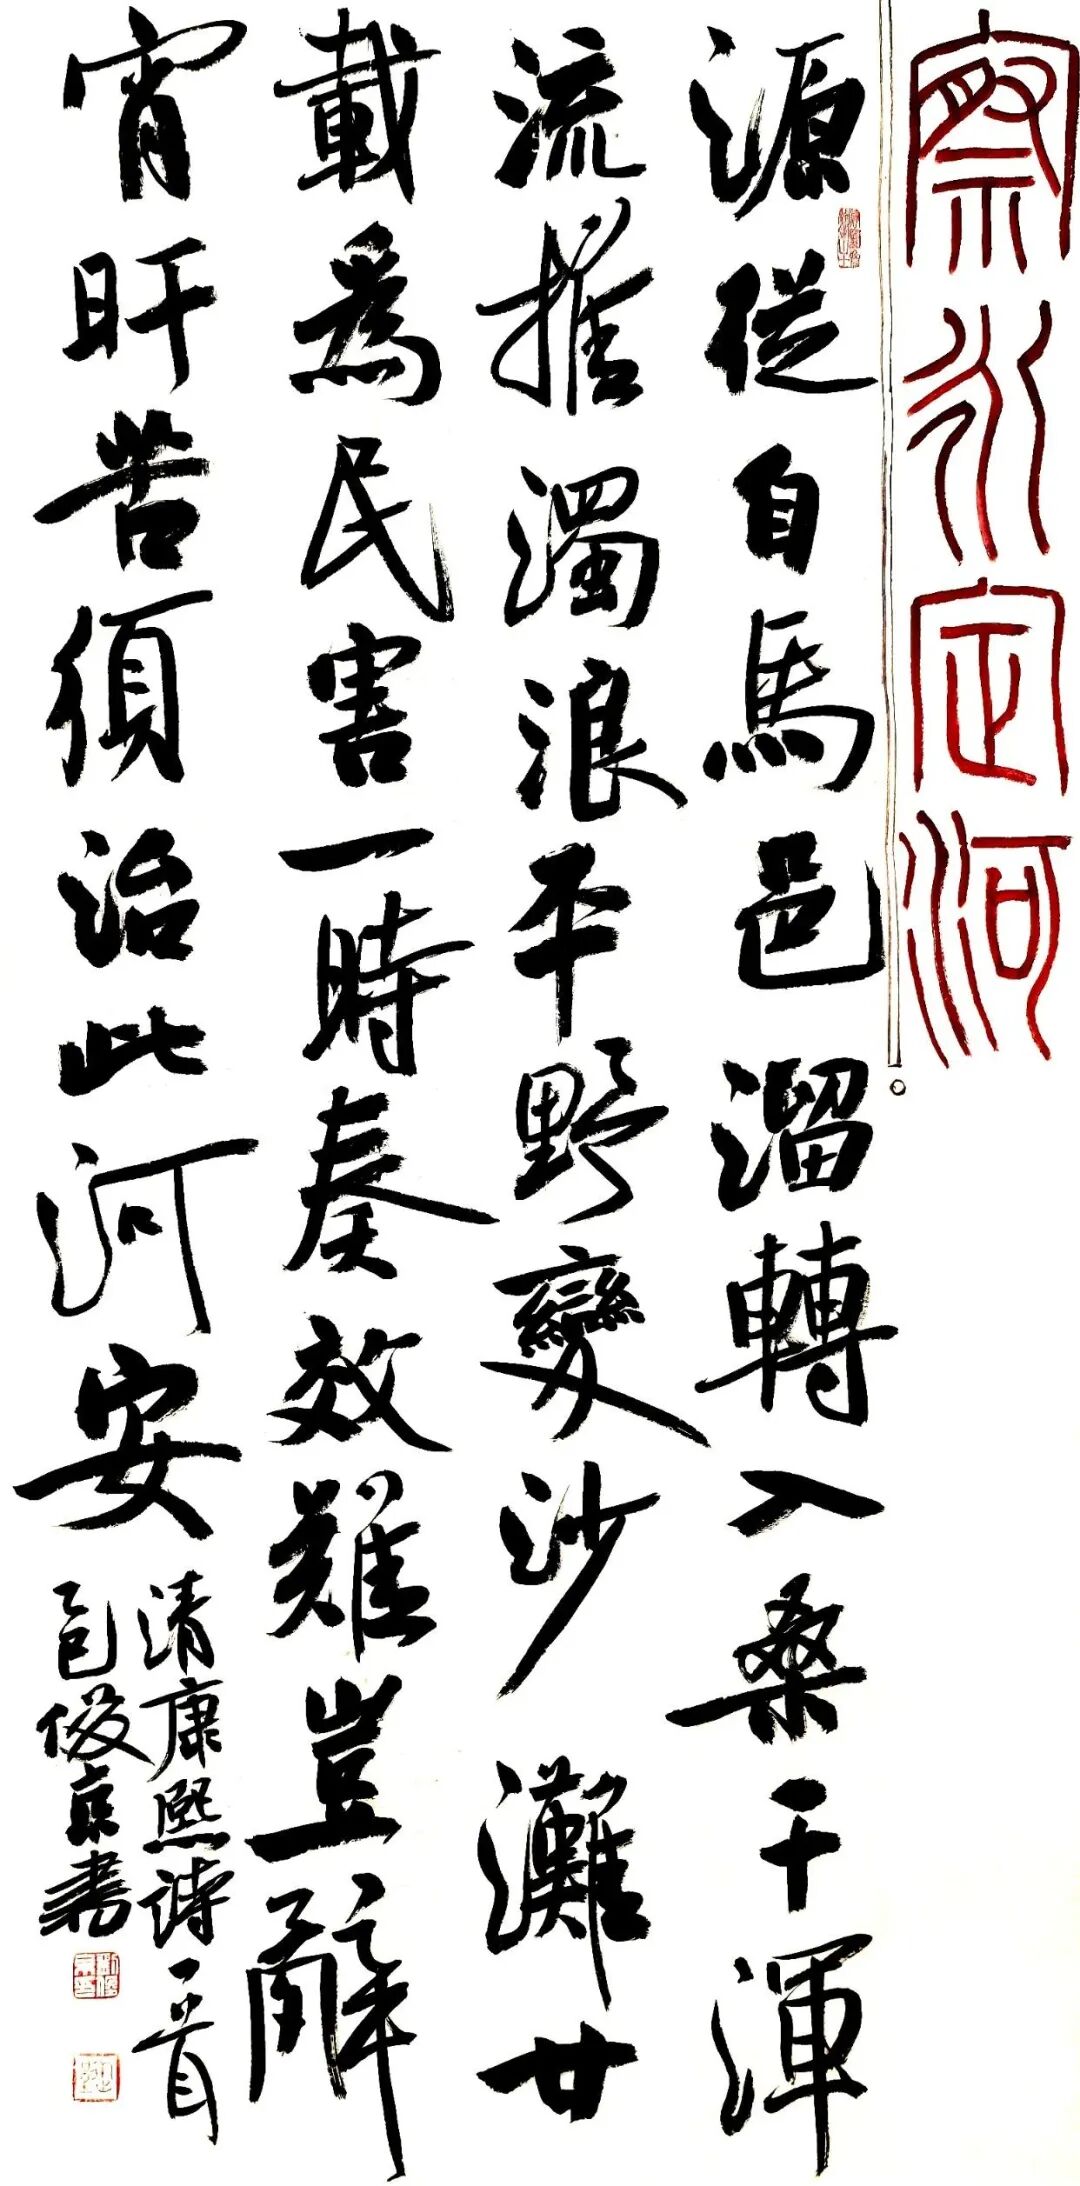 察永定河
源從自馬邑溜轉入桑干渾
流推濁浪平野變沙灘廿
載為民害一時奏效難豈辭
宵旰苦須治此河安
清康熙詩一首
俊京書